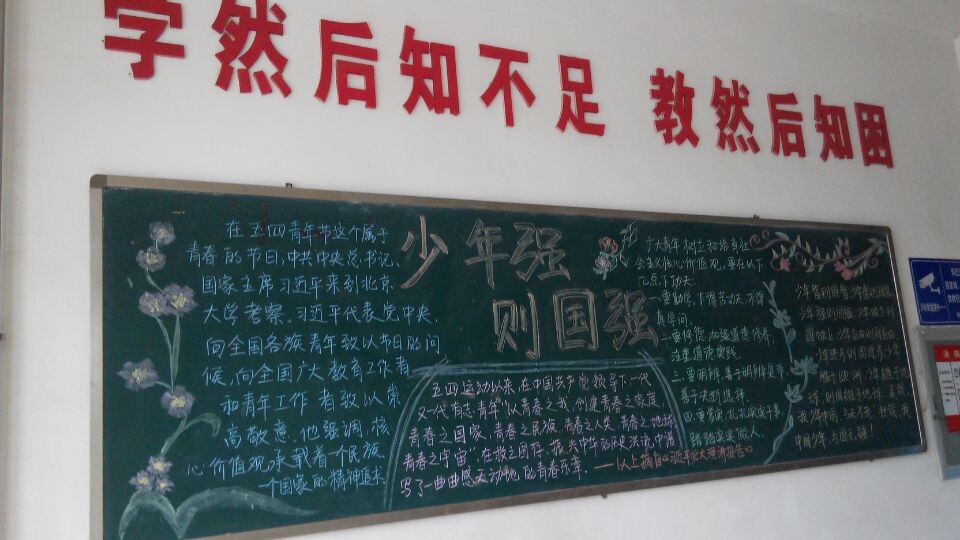 学然后知不足 教然后知困
少年强
则国强
在五四青年节这个属于
青春的节日,中共中央总书记、
国家主席习近平来到北京
大学考察.习近平代表党中央,
向全国各族青年致以节日的问
候,向全国广大教育工作者
和青年工作者致以崇
高敬意.他强调,核
心价值观承载着一个民族、
一个国家的精神追求
五四运动以来,在中国共产党领导下,一代
又一代有志青年"以青春之我,创建青春之家庭,
青春之国家,青春之民族,青春之人类,青春之地球,
青春之宇宙",在救亡图存、振兴中华的历史洪流中谱
写了一曲曲感天动地的青春乐章.
广大青年树立和培育社
会主义核心价值观,要在以下
几点下功夫.
一要勤学,下得苦功夫,求得
真学问.
二要修德,加强道德修养,
注重道德实践.
三.要明辨,善于明辨是非,
善于决断选择.
四.要笃实,扎扎实实干事,
踏踏实实做人.
少年智则国智,少年富则国富,
少年强则国强,少年独立则
国独立,少年自由则国自由,
少年进步则国进步,少年
胜于欧洲,
中国少年,与国无疆!